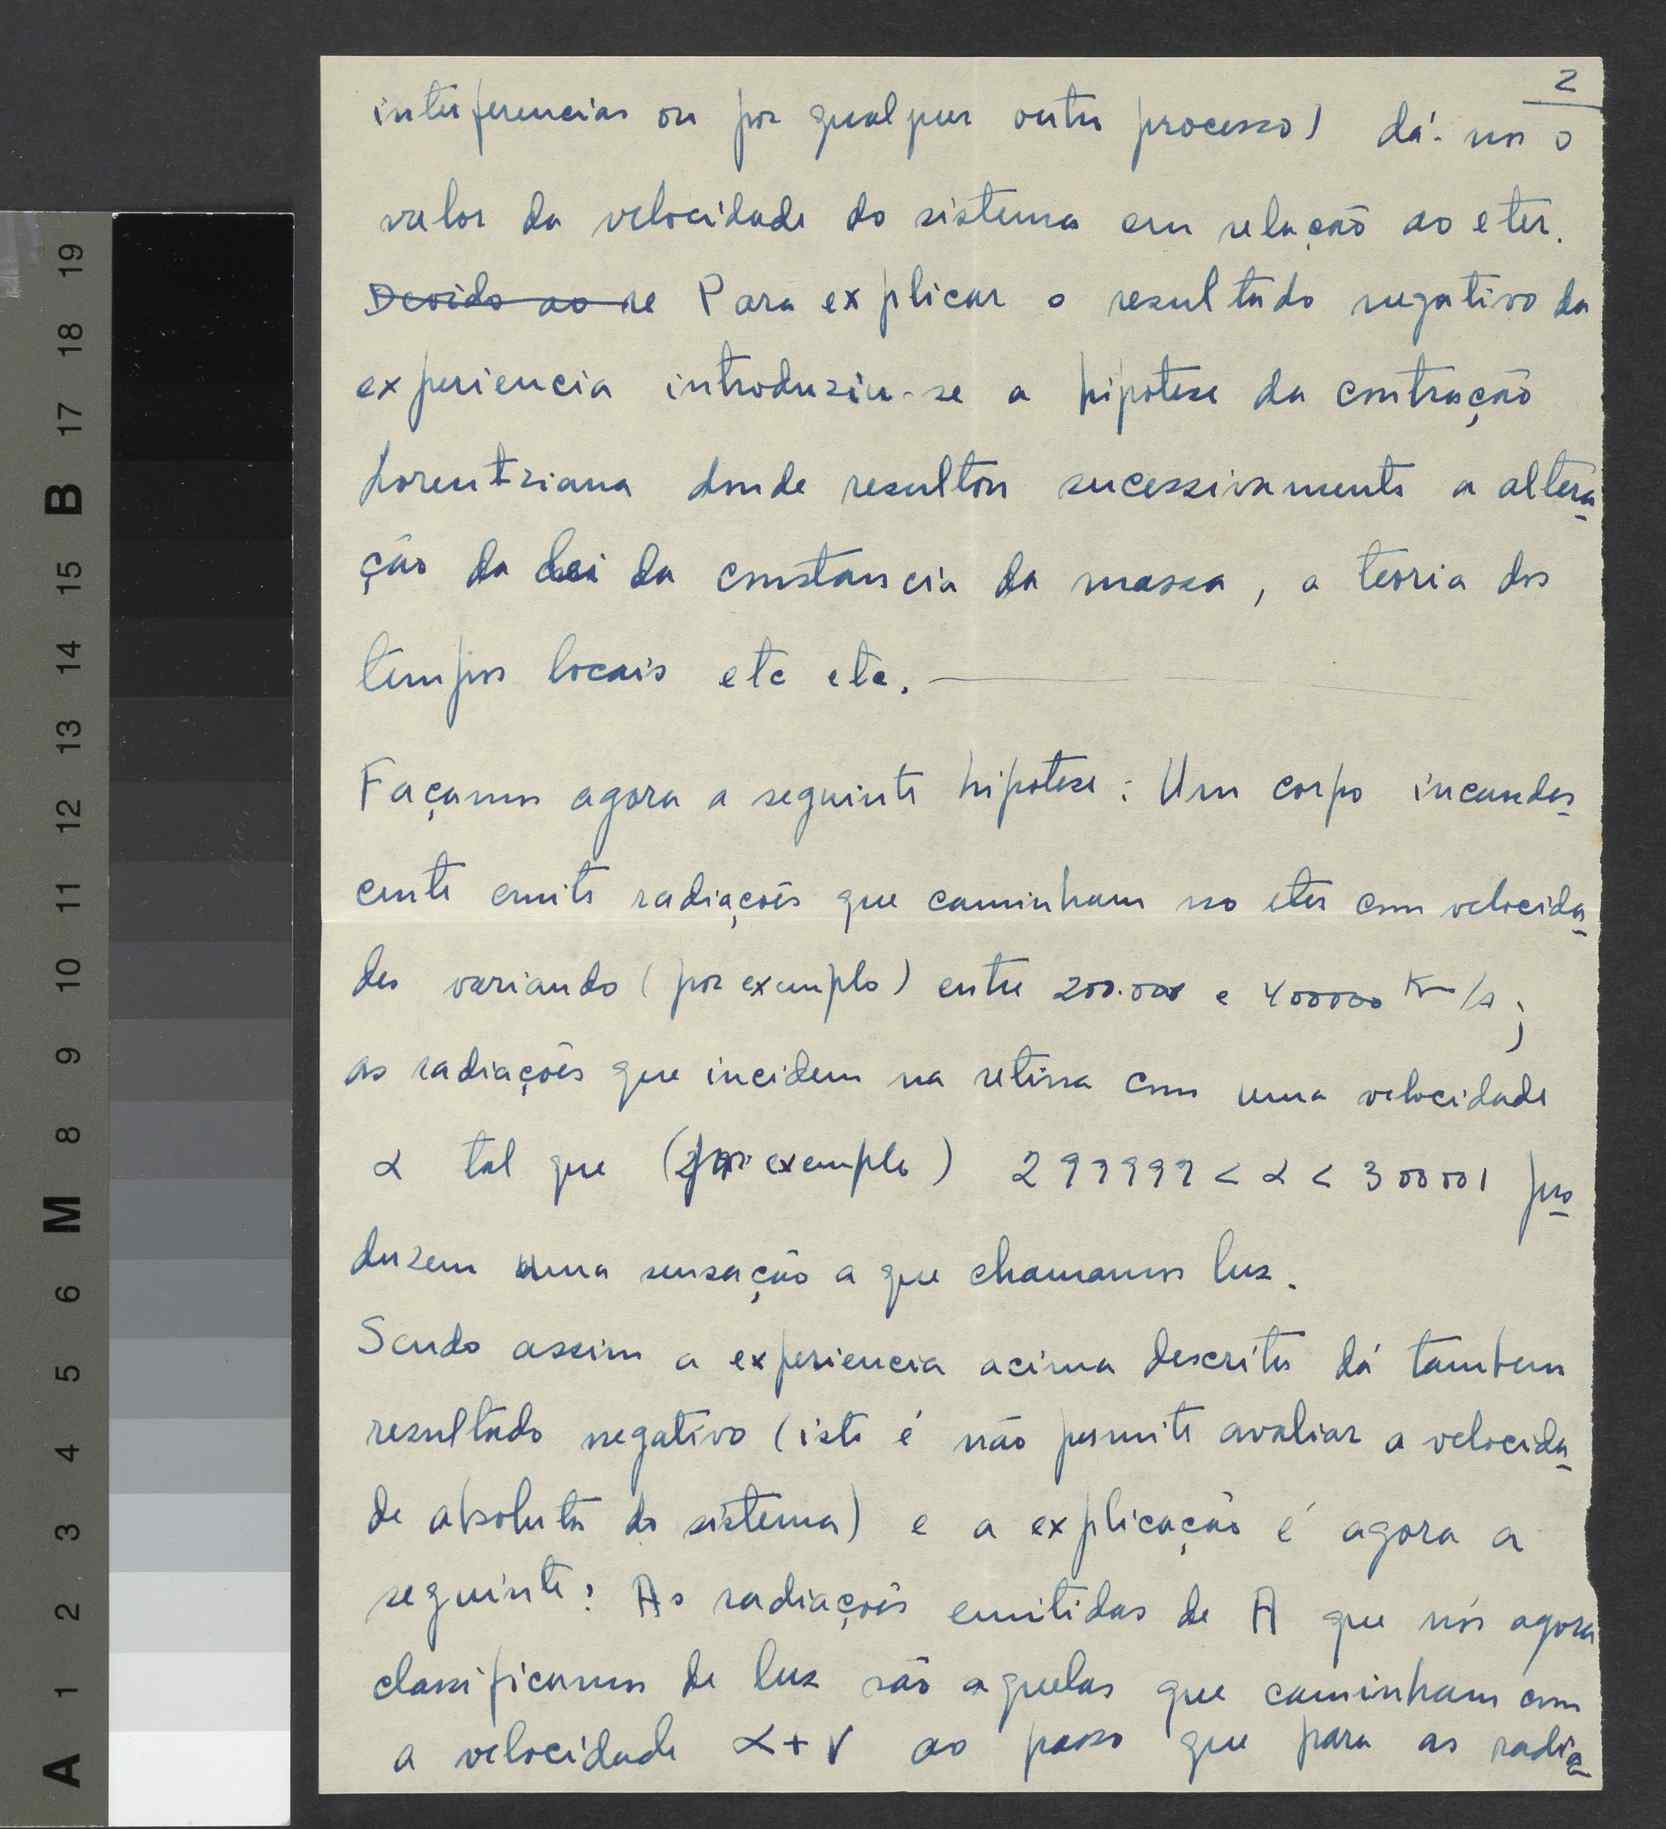 2
interferencias ou por qualquer outro processo) dá-nos o
valor da velocidade do sistema em relação ao eter.
Devido ao re Para explicar o resultado negativo da
experiencia introduziu-se a hipotese da contração
Lorentziana donde resultou sucessivamente a altera
ção da lei da constancia da massa, a teoria dos
tempos locais etc etc. —
Façamos agora a seguinte hipotese: Um corpo incandes
cente emite radiações que caminham no eter com velocida
des variando (por exemplo) entre 200.000 e 400000 Km/s;
as radiações que incidem na retina com uma velocidade
α tal que (por exemplo) 299999 < α < 300001 pro
duzem uma sensação a que chamamos luz.
Sendo assim a experiencia acima descrita dá tambem
resultado negativo (isto é não permite avaliar a velocida
de absoluta do sistema) e a explicação é agora a
seguinte: As radiações emitidas de A que nós agora
classificamos de luz são aquelas que caminham com
a velocidade α+v ao passo que para as radia
19
18
17
B
15
14
13
12
11
10
9
8
M
6
5
4
3
2
1
A